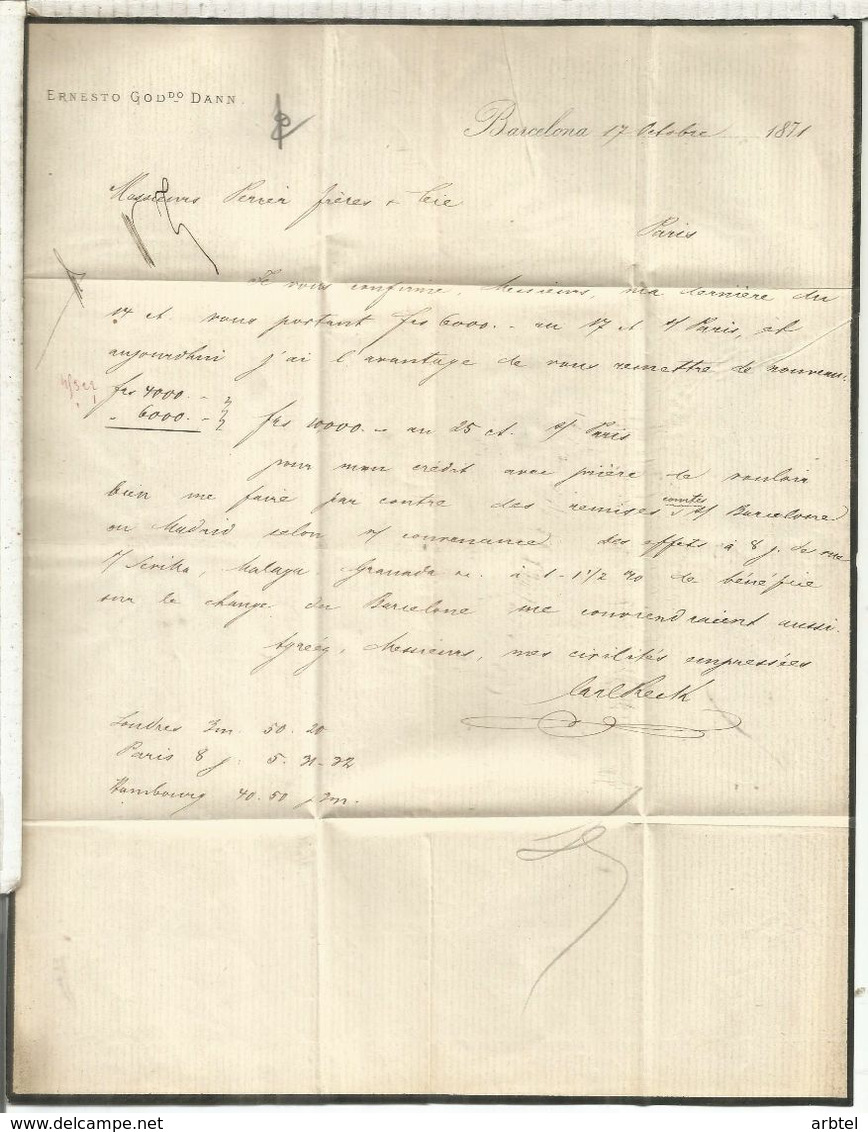 ERNESTO GOD^DO DANN.
Barcelona 17 Octobre 1871
Messieurs Perrier frères & Cie
Paris
Je vous confirme, Messieurs, ma dernière du
14 ct. vous portant frs 6000.- au 17 ct s/ Paris, et
aujourdhui j'ai l'avantage de vous remettre de nouveau:
frs 4000.-
" 6000.- frs 10000.- au 25 ct. s/ Paris
pour mon crédit avec prière de vouloir
bien me faire par contre des remises courtes s/ Barcelone
ou Madrid selon v/ convenance. Des effets à 8 j. de vue
s/ Sevilla, Malaga, Granada &c. à 1-1 1/2 % de bénéfice
sur le change du Barcelone me conviendraient aussi.
Agréez, Messieurs, mes civilités empressées
Londres 3m. 50.20
Paris 8 j. 5.31-32
Hambourg 40.50 p 3m.
arbtel